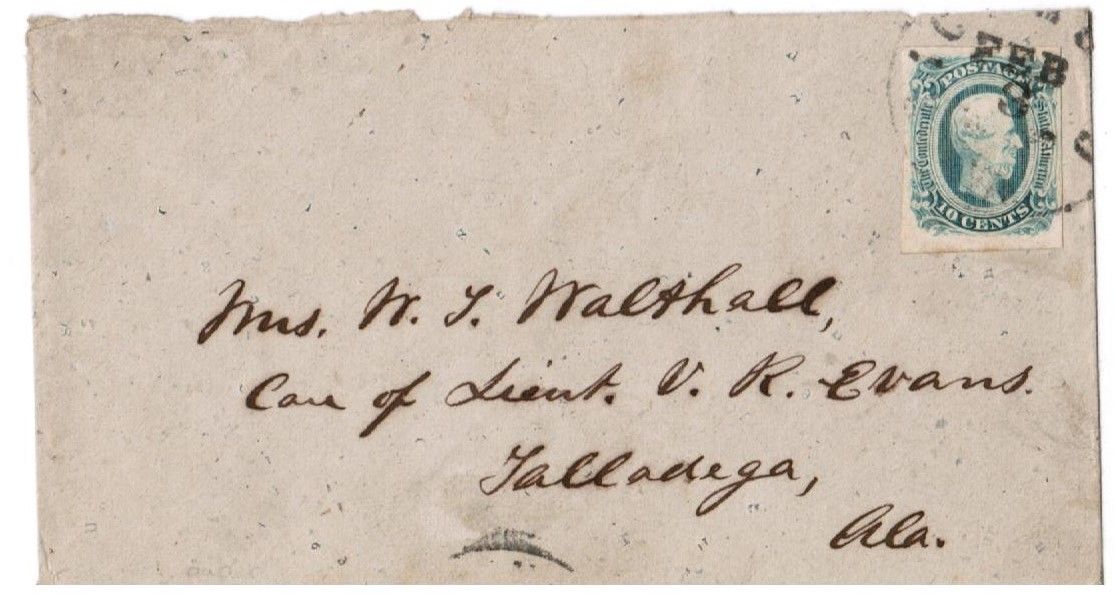 FEB
POSTAGE
The Confederate States of America
10 CENTS
Mrs. W. T. Walthall,
Care of Lieut. V. R. Evans.
Talladega,
Ala.